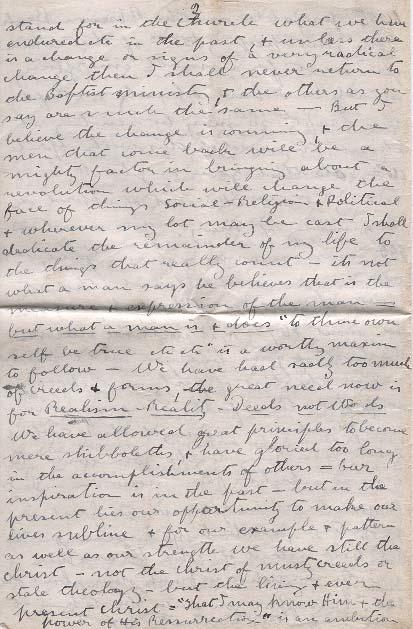 2
stand for in the Church what we have
endured etc in the past, & unless there
is a change or signs of a very radical
change then I shall never return to
the Baptist ministry, & the others as you
say are much the same — But I
believe the change is coming, & the
men that come back will be a
mighty factor in bringing about a
revolution which will change the
face of things Social - Religion & Political
& wherever my lot may be cast I shall
dedicate the remainder of my life to
the things that really count - its not
what a man says he believes that is the
measure & expression of the man =
but what a man is & does "to thine own
self be true etc etc" is a worthy maxim
to follow - We have had sadly too much
of creeds & forms, the great need now is
for Realism - Reality - Deeds not Words
We have allowed great principles to become
mere shibboleths, & have gloried too long
in the accomplishments of others = our
inspiration is in the past - but in the
present lies our opportunity to make our
lives sublime & for our example & pattern
as well as our strength we have still the
Christ - not the Christ of musty creeds or
stale theology - but the living & ever
present Christ = "That I may know Him & the
power of His Ressurrection" is an ambition